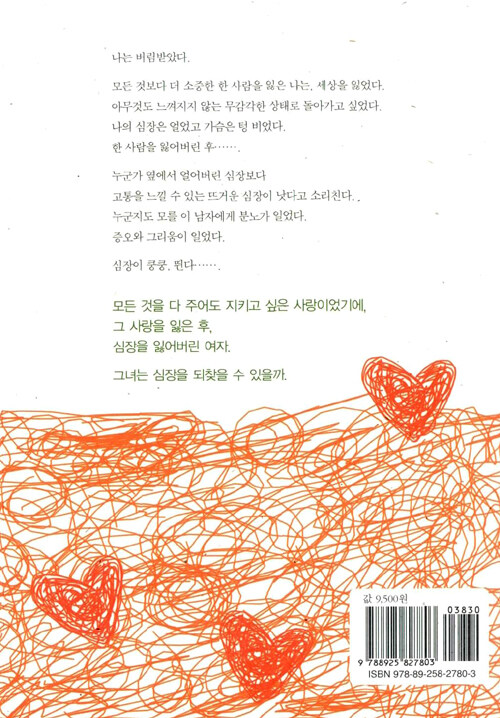 나는 버림받았다.
모든 것보다 더 소중한 한 사람을 잃은 나는, 세상을 잃었다.
아무것도 느껴지지 않는 무감각한 상태로 돌아가고 싶었다.
나의 심장은 얼었고 가슴은 텅 비었다.
한 사람을 잃어버린 후…….
누군가 옆에서 얼어버린 심장보다
고통을 느낄 수 있는 뜨거운 심장이 낫다고 소리친다.
누군지도 모를 이 남자에게 분노가 일었다.
증오와 그리움이 일었다.
심장이 쿵쿵, 뛴다…….
모든 것을 다 주어도 지키고 싶은 사랑이었기에,
그 사랑을 잃은 후,
심장을 잃어버린 여자.
그녀는 심장을 되찾을 수 있을까.
값 9,500원
03830
9 788925 827803
ISBN 978-89-258-2780-3